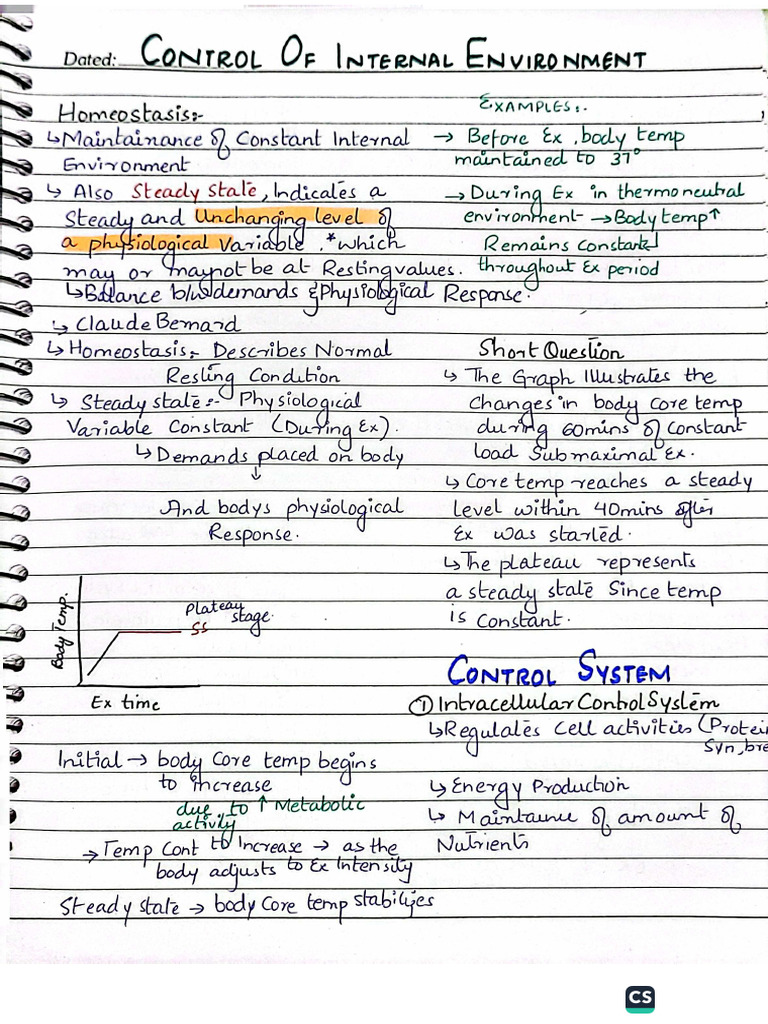 Dated: CONTROL OF INTERNAL ENVIRONMENT
Homeostasis:-
↳ Maintainance of Constant Internal
Environment
↳ Also Steady state, Indicates a
Steady and Unchanging level of
a physiological Variable. *which
may or maynot be at Resting values.
↳ Balance b/w demands & Physiological Response.
↳ Claude Bernard
↳ Homeostasis:- Describes Normal
Resting Condition
↳ Steady state:- Physiological
Variable Constant (During Ex).
↳ Demands placed on body
↓
And bodys physiological
Response.
Body Temp.
Plateau
stage.
SS
Ex time
Initial → body Core temp begins
to increase
due to ↑ Metabolic
activity
→ Temp Cont to Increase → as the
body adjusts to Ex Intensity
Steady state → body Core temp stabilizes
EXAMPLES:.
→ Before Ex, body temp
maintained to 37°
→ During Ex in thermoneutral
environment → Body temp ↑
Remains constant
throughout Ex period
Short Question
↳ The Graph Illustrates the
changes in body core temp
during 60mins of Constant
load Submaximal Ex.
↳ Core temp reaches a steady
level within 40mins after
Ex was started.
↳ The plateau represents
a steady state Since temp
is Constant.
CONTROL SYSTEM
① Intracellular Control System
↳ Regulates Cell activities (Protein
Syn, bre
↳ Energy Production
↳ Maintaince of amount of
Nutrients
CS